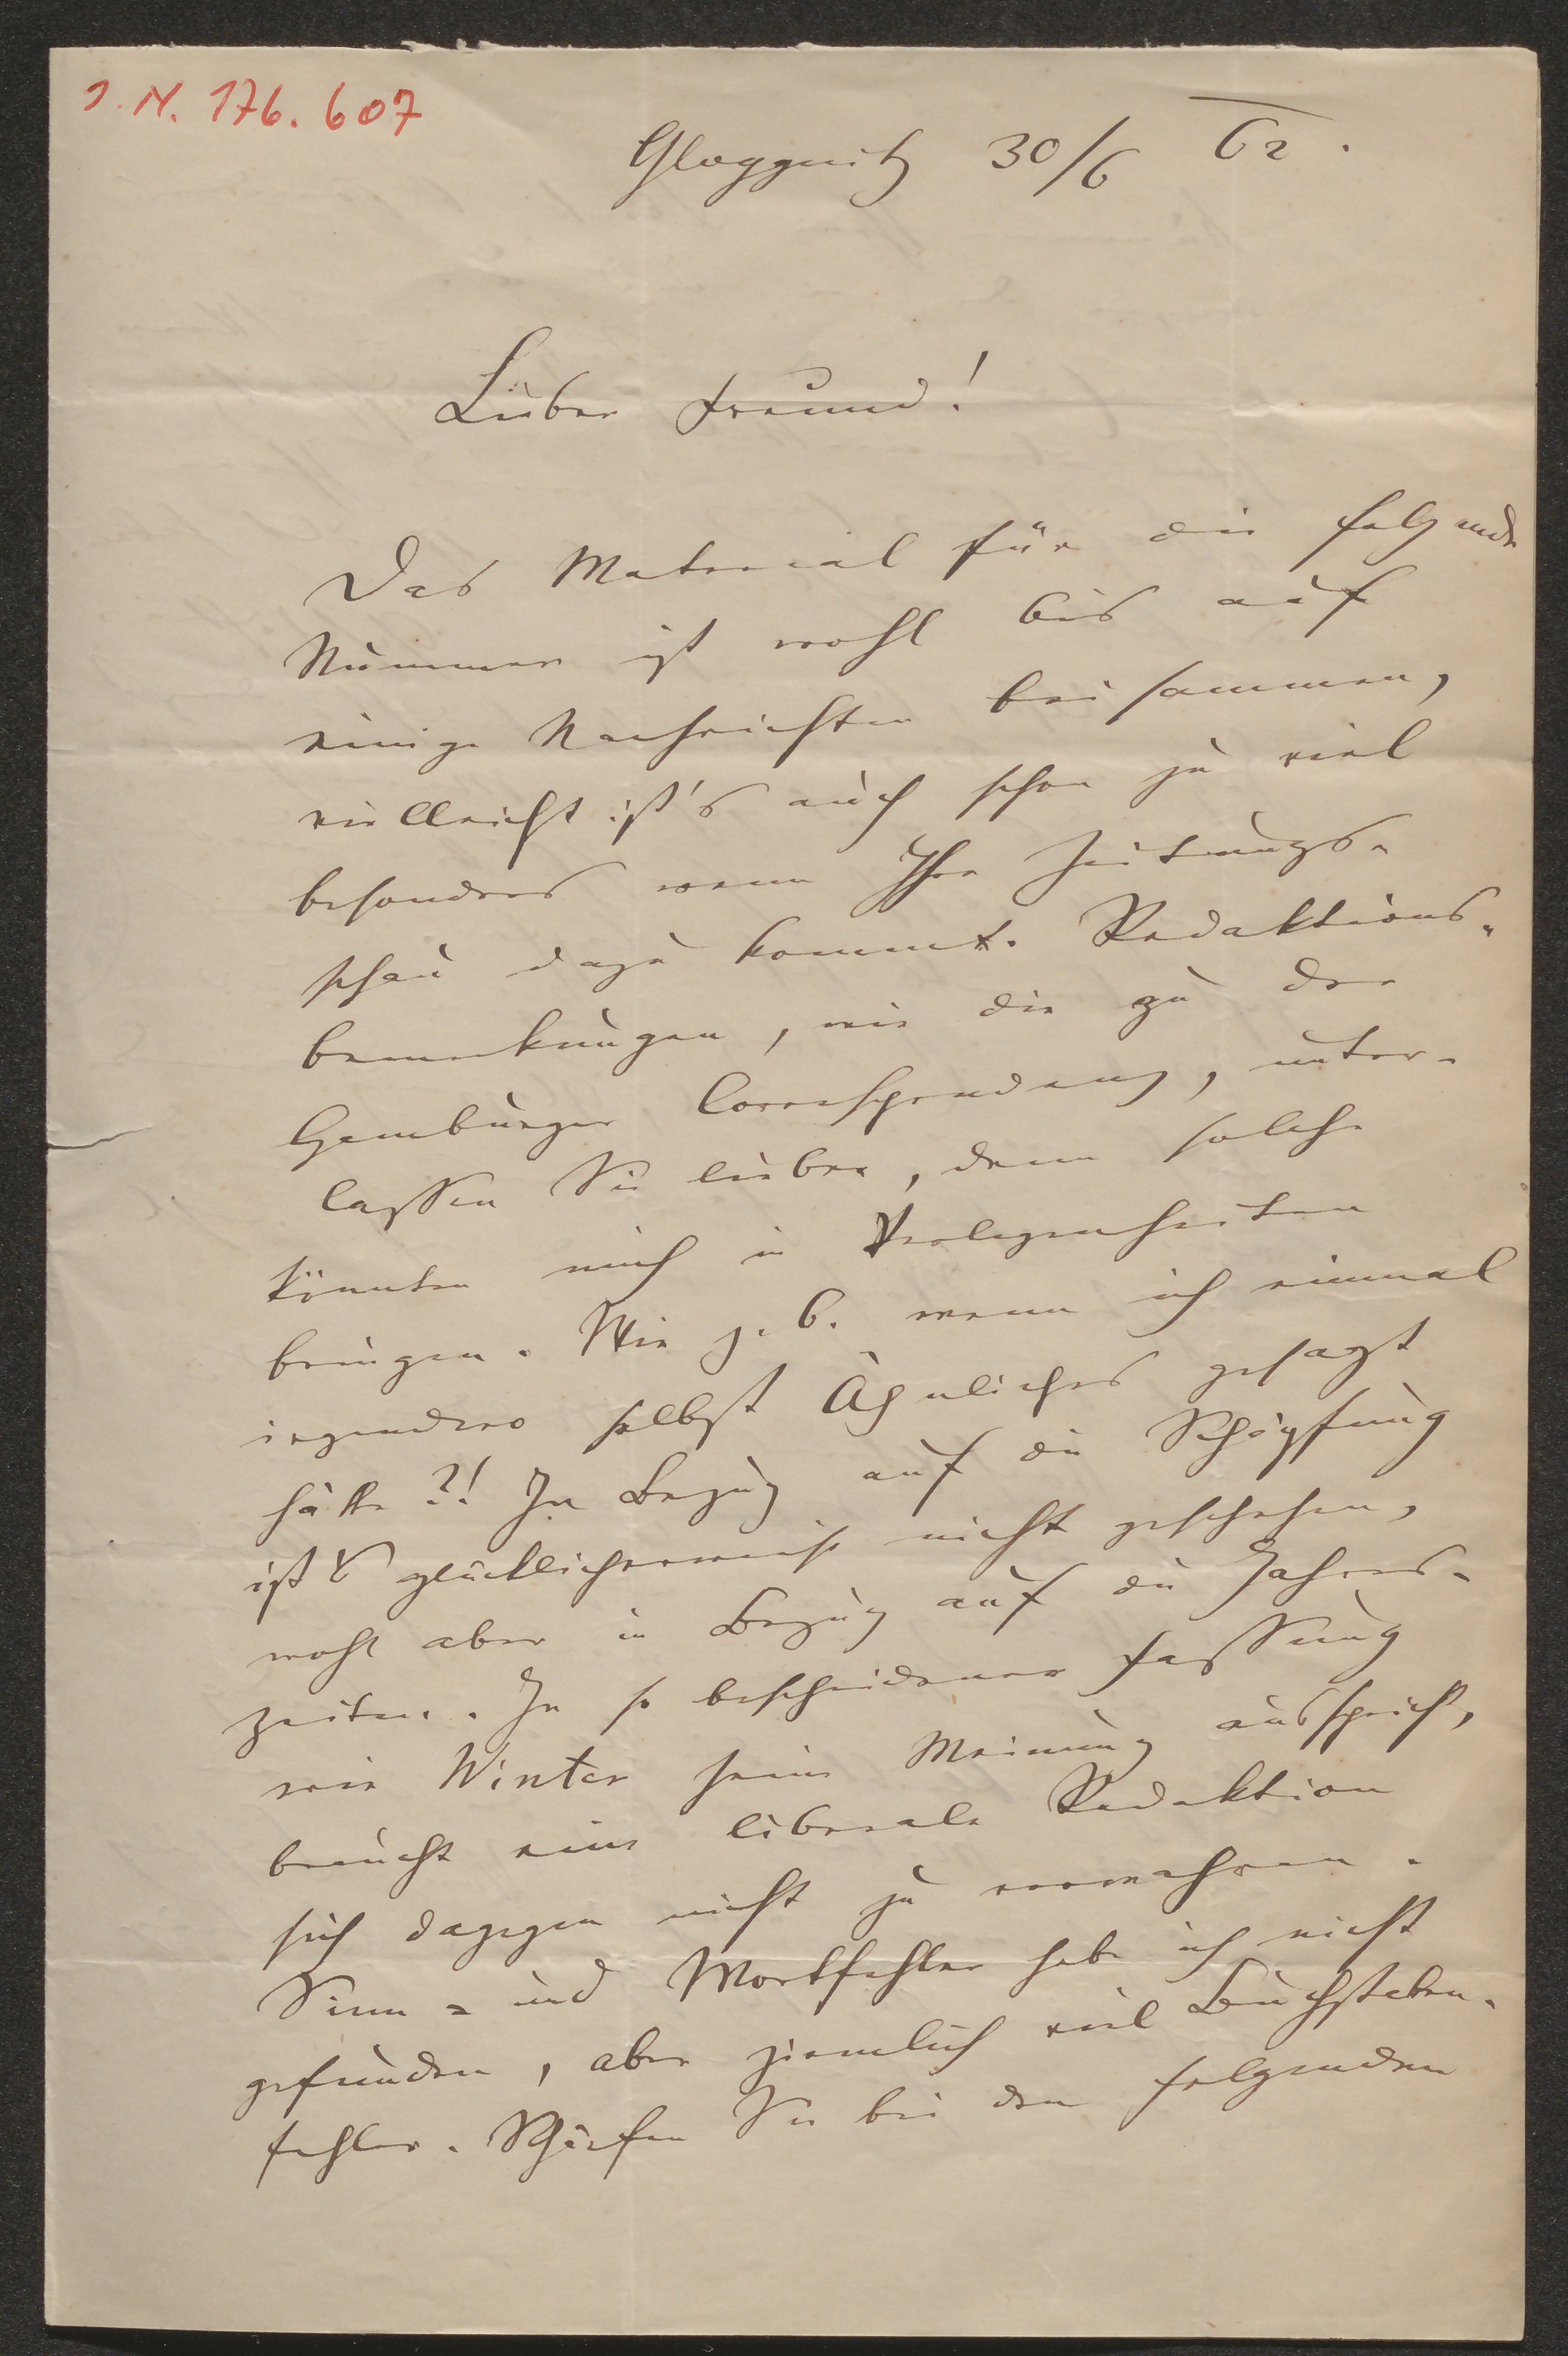 I. N. 176.607
Gloggnitz 30/6 62.
Lieber Freund!
Das Material für die folgende
Nummer ist wohl bis auf
einige Nachrichten beisammen,
vielleicht ist's auch schon zu viel
besonders wenn Ihre Zeitungs-
schau dazu kommt. Redaktions-
bemerkungen, wie die zu der
Hamburger Correspondenz, unter-
lassen Sie lieber, denn solche
könnten mich in Verlegenheiten
bringen. Wie z. B. wenn ich einmal
irgendwo selbst Ähnliches gesagt
hätte?! In Bezug auf die Schöpfung
ist's glücklicherweise nicht geschehen,
wohl aber in Bezug auf die Jahres-
zeiten. In so bescheidener Fassung
wie Winter seine Meinung ausspricht,
braucht eine liberale Redaktion
sich dagegen nicht zu verwahren.
Sinn- und Wortfehler habe ich nicht
gefunden, aber ziemlich viel Buchstaben-
fehler. Schärfen Sie bei den folgenden